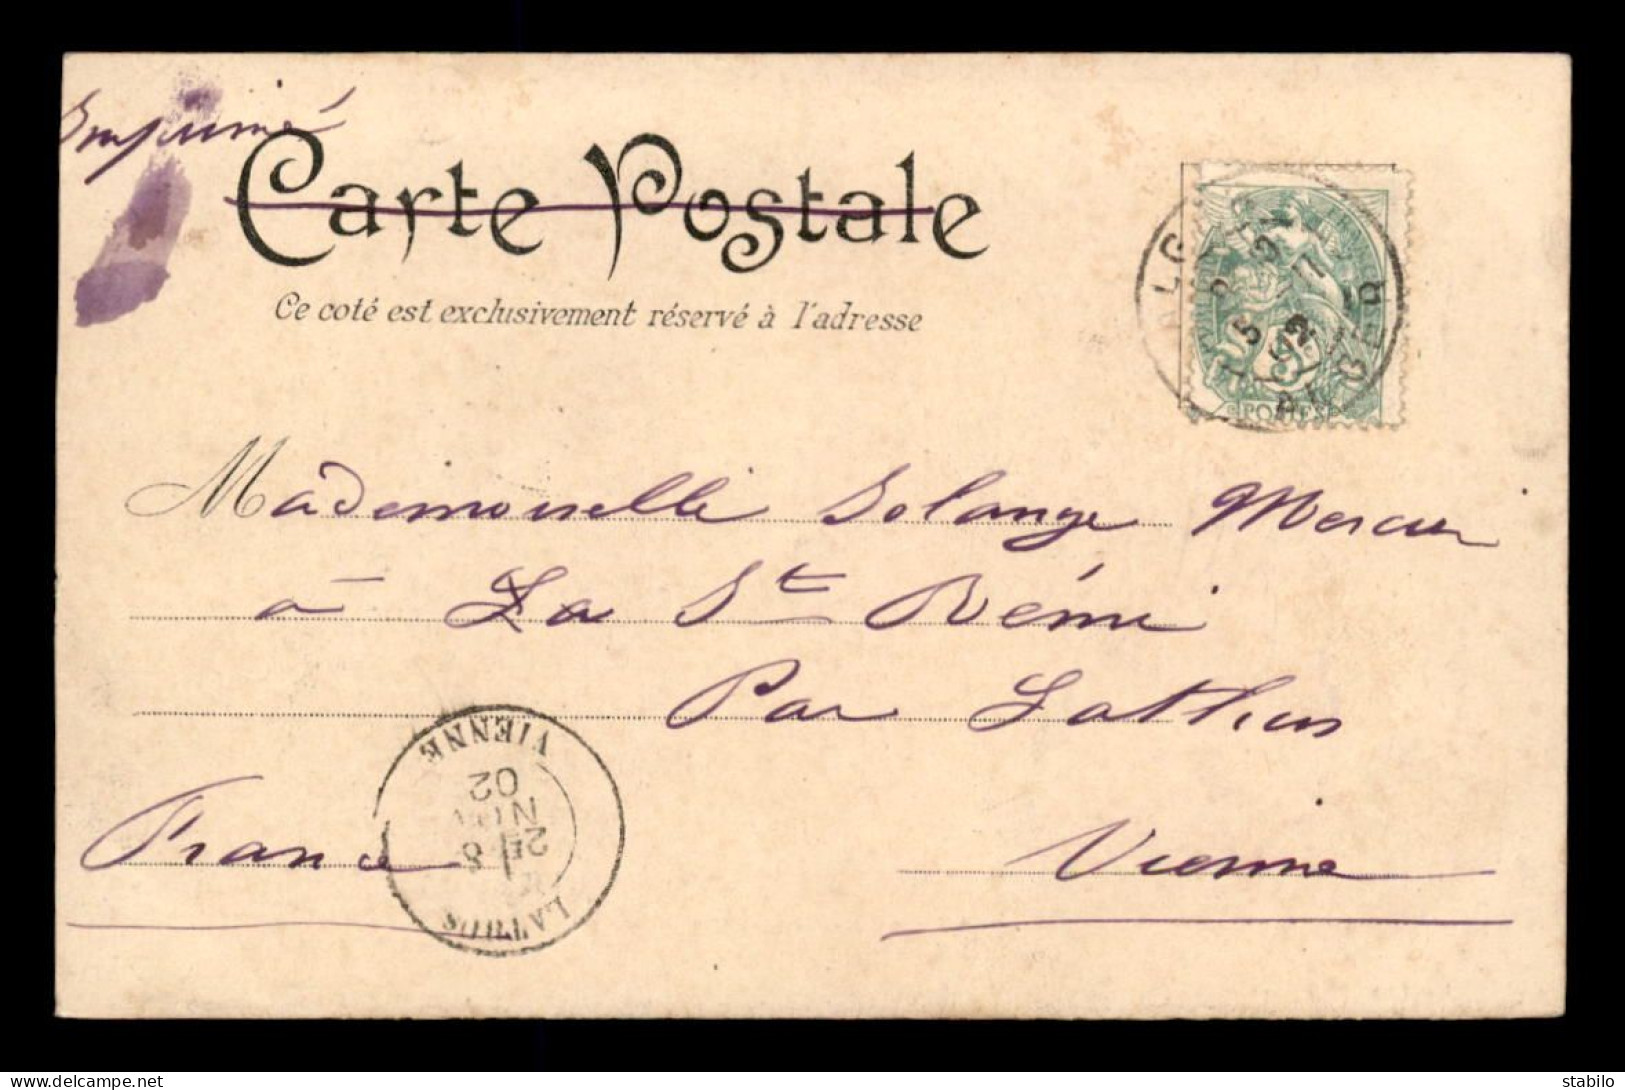 Imprimé
Carte Postale
Ce coté est exclusivement réservé à l'adresse
ALGER
5
02
ALGER
POSTES
Mademoiselle Solange Mercier
à La St Rémi
Par Lathus
Vienne
France
VIENNE
02
LATHUS
delcampe.net
stabilo